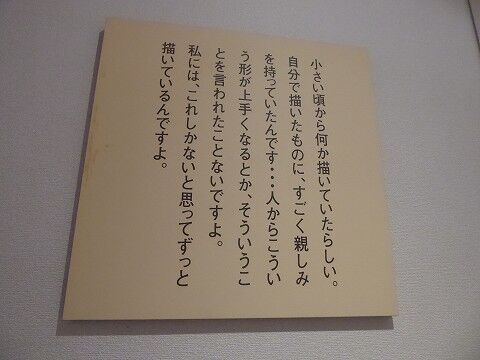 小さい頃から何か描いていたらしい。
自分で描いたものに、すごく親しみ
を持っていたんです・・・人からこうい
う形が上手くなるとか、そういうこ
とを言われたことないですよ。
私には、これしかないと思ってずっと
描いているんですよ。